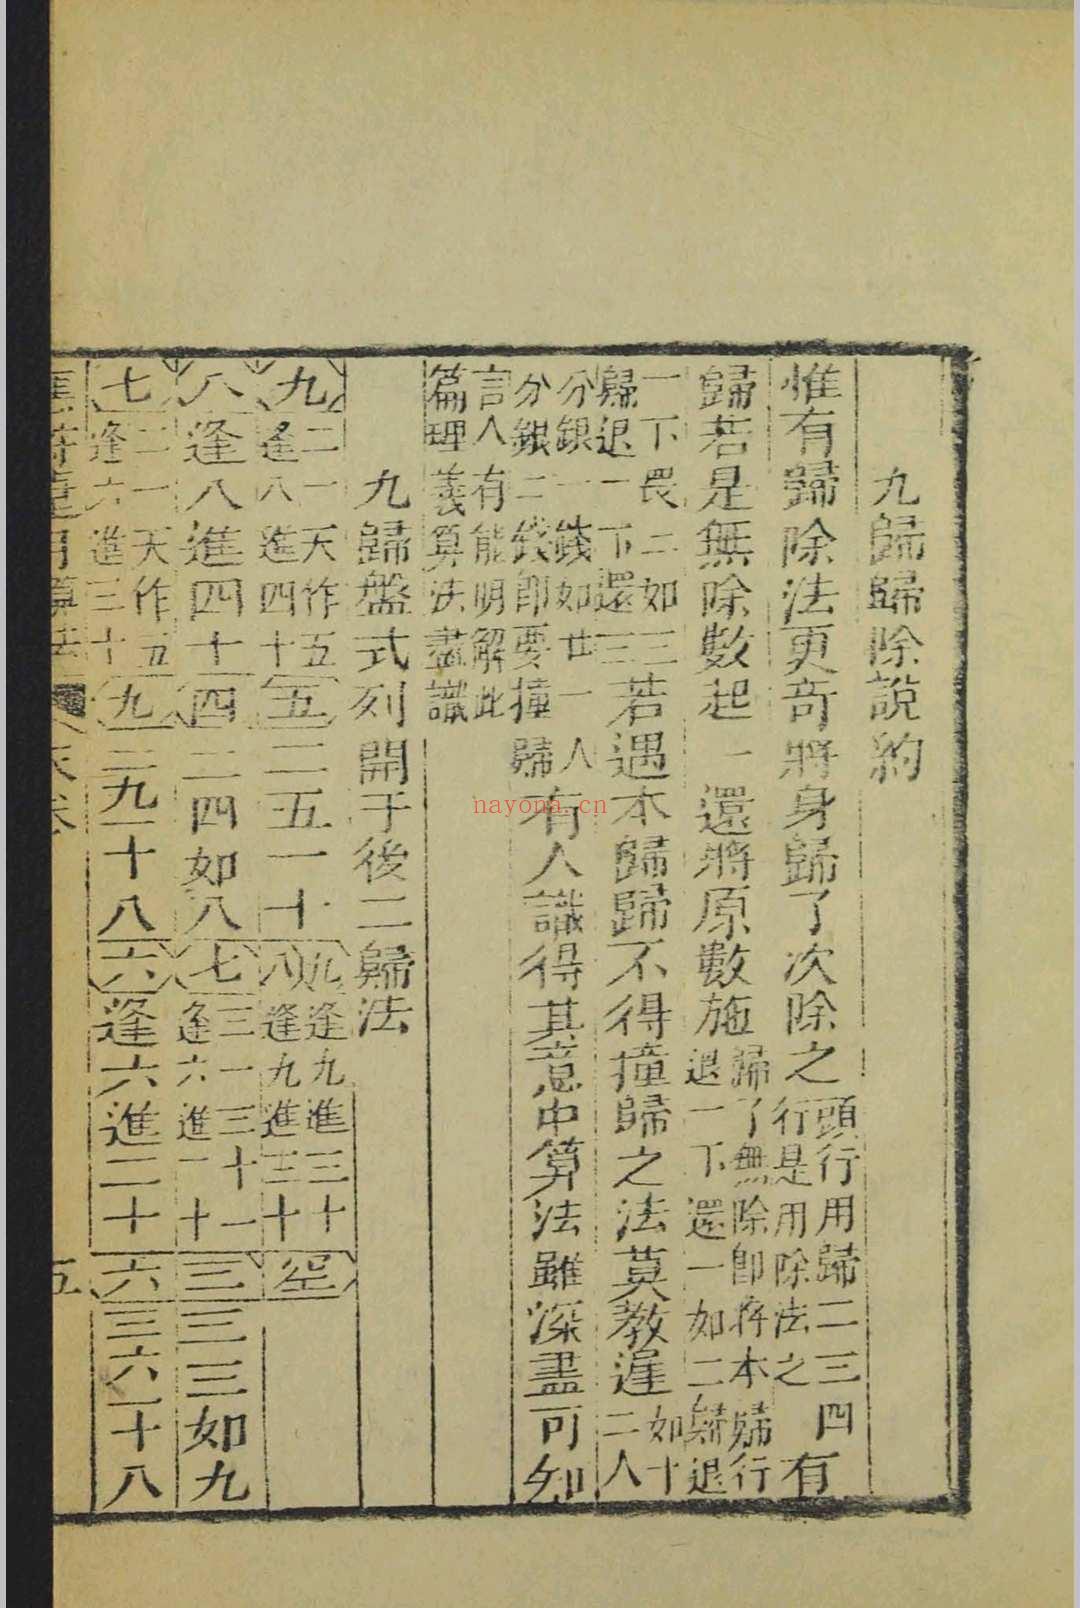 九歸歸除說約
惟有歸除法更奇將身歸了次除之頭行用歸二三四行是用除法之有
歸若是無除數起一還將原數施歸了無除即將本歸行退一下還一如二歸退
一下畏二如三歸退一下還三若遇本歸歸不得撞歸之法莫教遲如十二人
分銀一錢如廿一人分銀二錢即要撞歸有人識得其意中算法雖深盡可知
言人有能明解此篇理義算法盡識
九歸盤式列開于後二歸法
九二一天作五逢八進四十五二五一十九八逢九進三十逢九進三十空
八逢八進四十四二四如八七三一三十一逢六進二十三三三如九
七二一天作五逢六進三十九二九一十八六逢六進二十六三六一十八
算法
五
nayona.cn